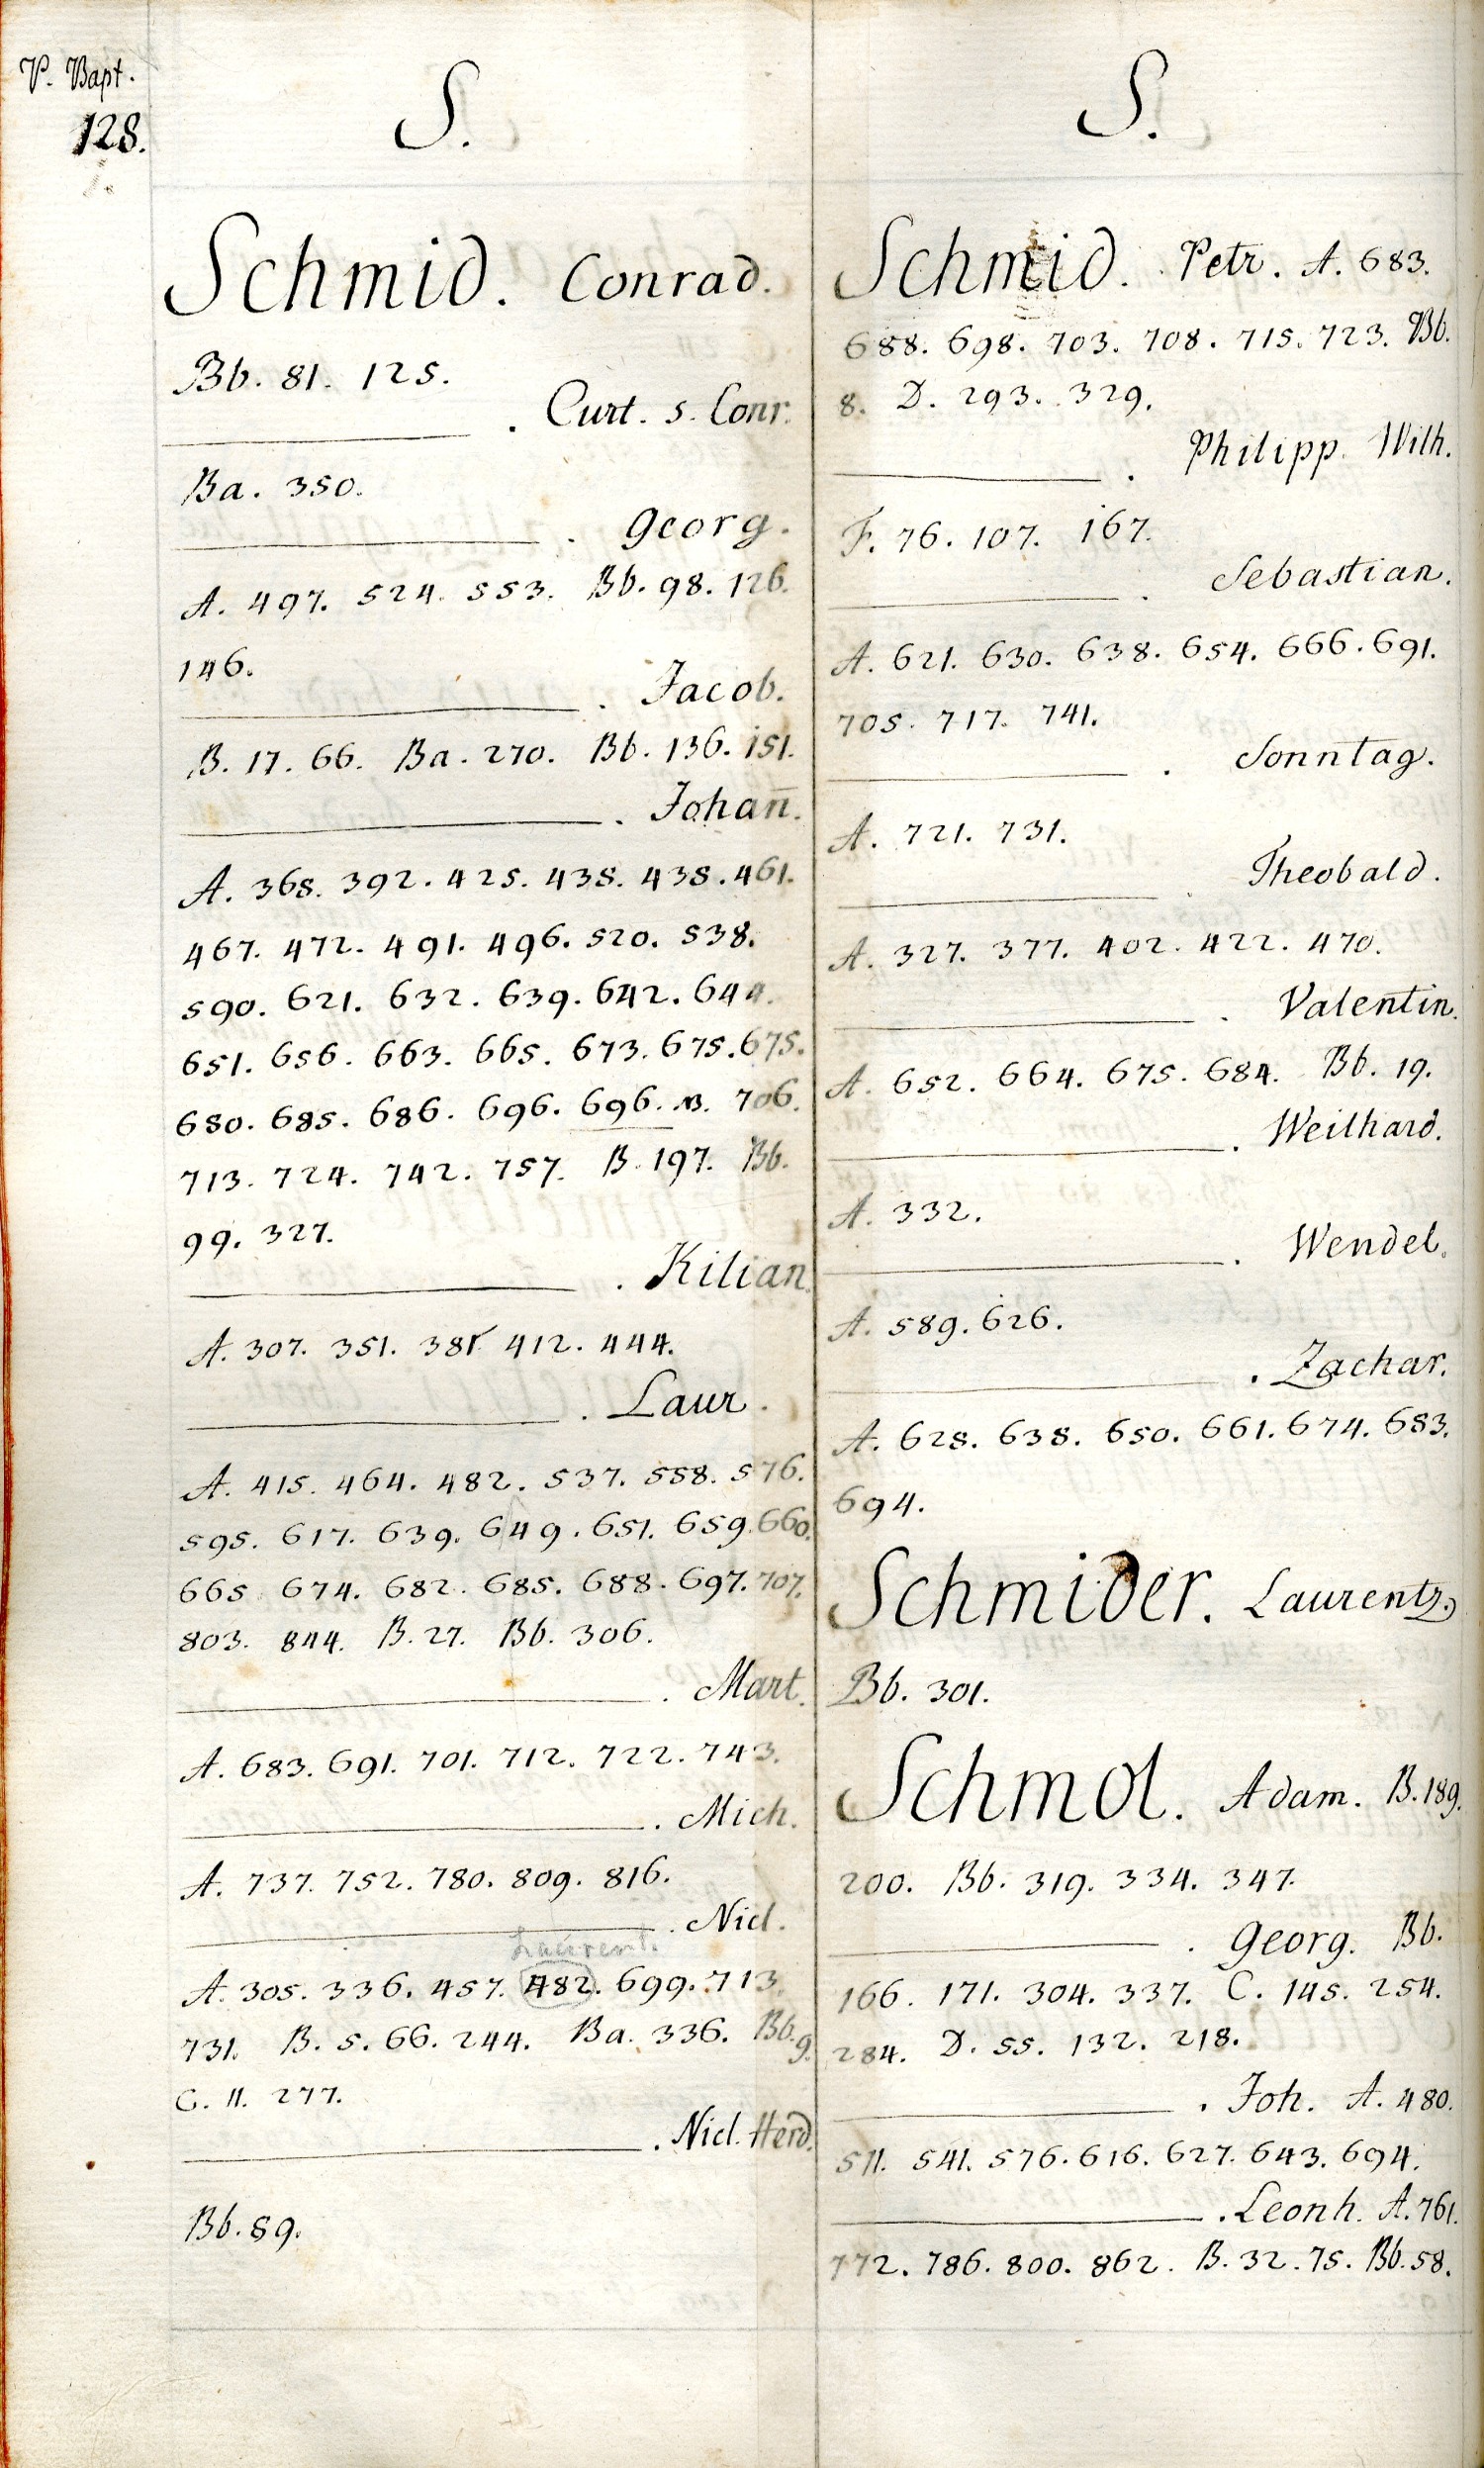 P. Bapt.
128.
S.
Schmid. Conrad.
Bb. 81. 125.
. Curt. s. Conr.
Ba. 350.
. Georg.
A. 497. 524. 553. Bb. 98. 126.
146.
. Jacob.
B. 17. 66. Ba. 270. Bb. 136. 151.
. Johan̄.
A. 368. 392. 425. 438. 438. 461.
467. 472. 491. 496. 520. 538.
590. 621. 632. 639. 642. 644.
651. 656. 663. 665. 673. 675. 675.
680. 685. 686. 696. 696. 706.
713. 724. 742. 757. B. 197. Bb.
99. 327.
. Kilian.
A. 307. 351. 381 412. 444.
. Laur.
A. 415. 464. 482. 537. 558. 576.
595. 617. 639. 649. 651. 659. 660.
665 674. 682. 685. 688. 697. 707.
803. 844. B. 27. Bb. 306.
. Mart.
A. 683. 691. 701. 712. 722. 743.
. Mich.
A. 737. 752. 780. 809. 816.
. Nicl.
Laurent.
A. 305. 336. 457. 482. 699. 713.
731. B. 5. 66. 244. Ba. 336. Bb. 9.
C. 11. 277.
. Nicl. Herd.
Bb. 89.
S.
Schmid. Petr. A. 683.
688. 698. 703. 708. 715. 723. Bb.
8. D. 293. 329.
. Philipp Wilh.
F. 76. 107. 167.
. Sebastian.
A. 621. 630. 638. 654. 666. 691.
705. 717. 741.
. Sonntag.
A. 721. 731.
. Theobald.
A. 327. 377. 402. 422. 470.
. Valentin.
A. 652. 664. 675. 684. Bb. 19.
. Weilhard.
A. 332.
. Wendel.
A. 589. 626.
. Zachar.
A. 628. 638. 650. 661. 674. 683.
694.
Schmider. Laurentz.
Bb. 301.
Schmol. Adam. B. 189.
200. Bb. 319. 334. 347.
. Georg. Bb.
166. 171. 304. 337. C. 145. 254.
284. D. 55. 132. 218.
. Joh. A. 480.
511. 541. 576. 616. 627. 643. 694.
. Leonh. A. 761.
772. 786. 800. 862. B. 32. 75. Bb. 58.